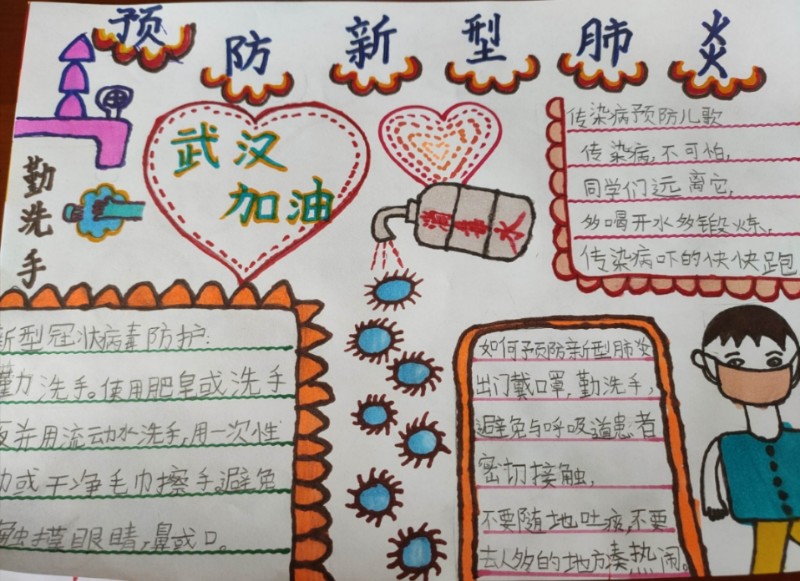 预防新型肺炎
勤洗手
武汉
加油
消毒水
传染病预防儿歌
传染病,不可怕,
同学们远离它,
多喝开水多锻炼,
传染病吓的快快跑
新型冠状病毒防护:
勤洗手。使用肥皂或洗手
液并用流动水洗手,用一次性
或干净毛巾擦手。避免
触摸眼睛,鼻或口。
如何予页防新型肺炎
出门戴口罩,勤洗手,
避免与呼吸道患者
密切接触,
不要随地吐痰,不要
去人多的地方凑热闹。